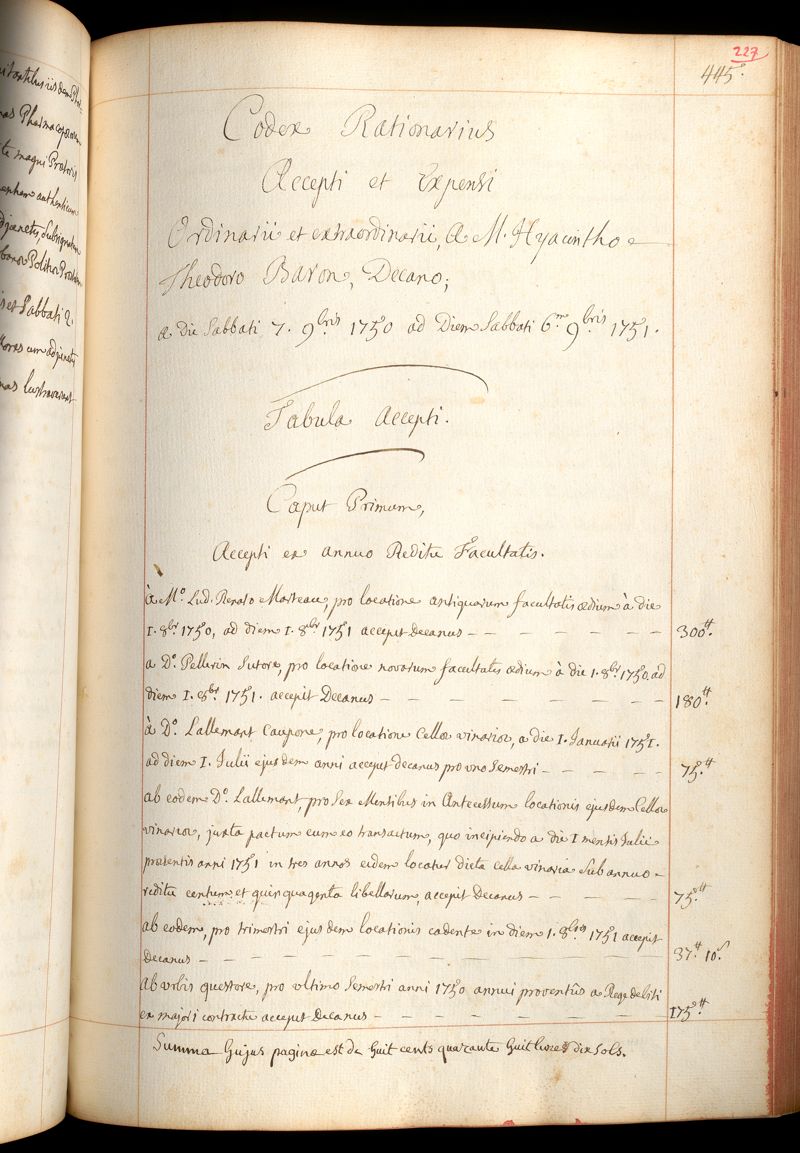 itortibus iisdem Phar-
nas Pharmacopœorum
te magni Prætoris
authenticum
subsignatum
bonæ Politiæ
is et Sabbati 2.
tores cum adjunctis
nas lustraverunt
227
445.
Codex Rationarius
Accepti et Expensi
Ordinarii et extraordinarii, a M. Hyacintho
Theodoro Baron, Decano;
a die Sabbati 7. 9bris 1750 ad Diem Sabbati 6am 9bris 1751.
Tabula Accepti.
Caput Primum,
Accepti ex annuo Reditu Facultatis.
à Mo. Lud. Renato Marteau, pro locatione antiquarum facultatis ædium à die
1. 8bris 1750, ad diem 1. 8bris 1751 accepit Decanus - - - - - - - 300tt.
a Do. Pellerin Sutore, pro locatione novarum facultatis ædium à die 1. 8bris 1750. ad
diem 1. 8bris 1751. accepit Decanus - - - - - - - - 180tt.
à Do. Lallemant Caupone, pro locatione Cellæ vinariæ, a die 1. Januarii 1751.
ad diem 1. Julii ejusdem anni accepit decanus pro uno Semestri - - - - - 75.tt
ab eodem Do. Lallemant, pro Sex Mensibus in Antecessum locationis ejusdem Cellæ
vinariæ, juxta pactum cum eo transactum, quo incipiendo a die 1 mensis Julii
præsentis anni 1751 in tres annos eidem locatur dicta cella vinaria sub annuo
reditu centum et quinquaginta libellarum, accepit Decanus - - - - - 75.tt
ab eodem, pro trimestri ejusdem locationis cadente in diem 1. 8bris 1751 accepit
Decanus - - - - - - - - - - - - - 37.tt 10.s
ab urbis quæstore, pro ultimo Semestri anni 1750 annui proventûs a Rege debiti
ex majori contractu accepit Decanus - - - - - - - 175.tt
Summa hujus paginæ est de huit cents quarante huit livres dix sols.